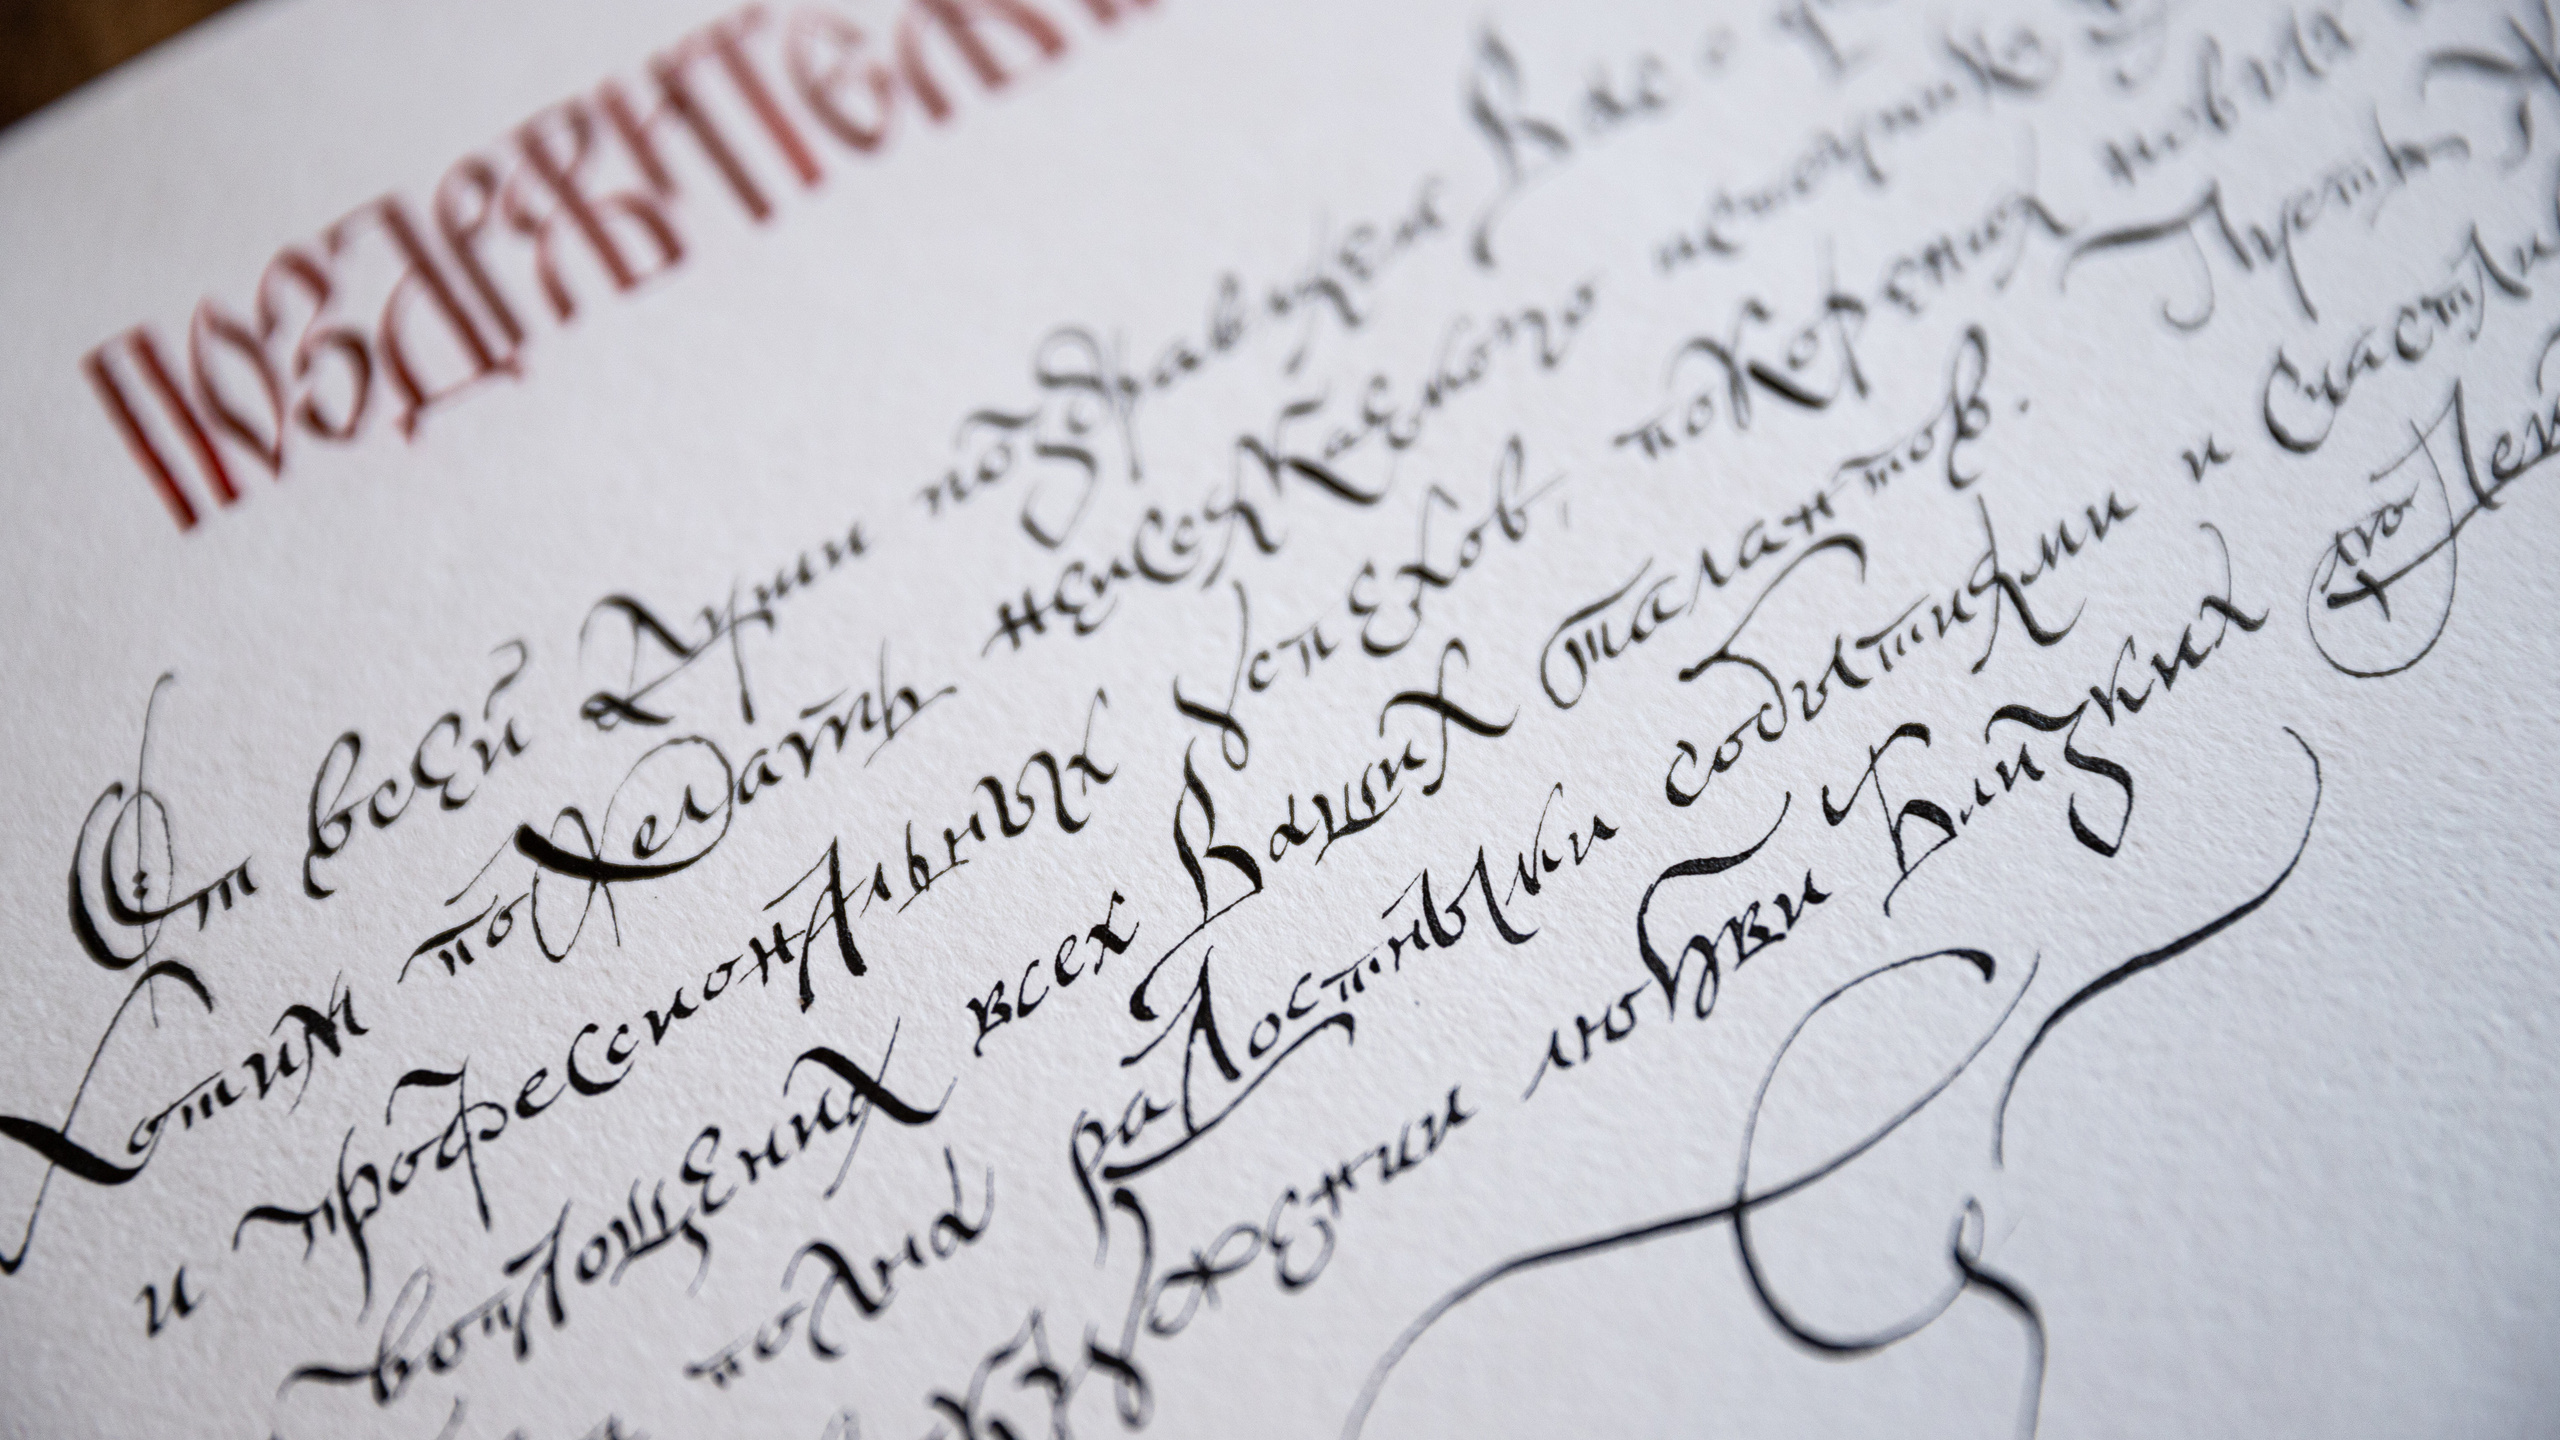 ПОЗДРАВИТЕЛЬ
От всей души поздравляем Вас с
Хотим пожелать неиссякаемого источника
и профессиональных успехов, покорения новых
воплощения всех Ваших талантов. Пусть
полна радостными событиями и счастли
окружении любви близких